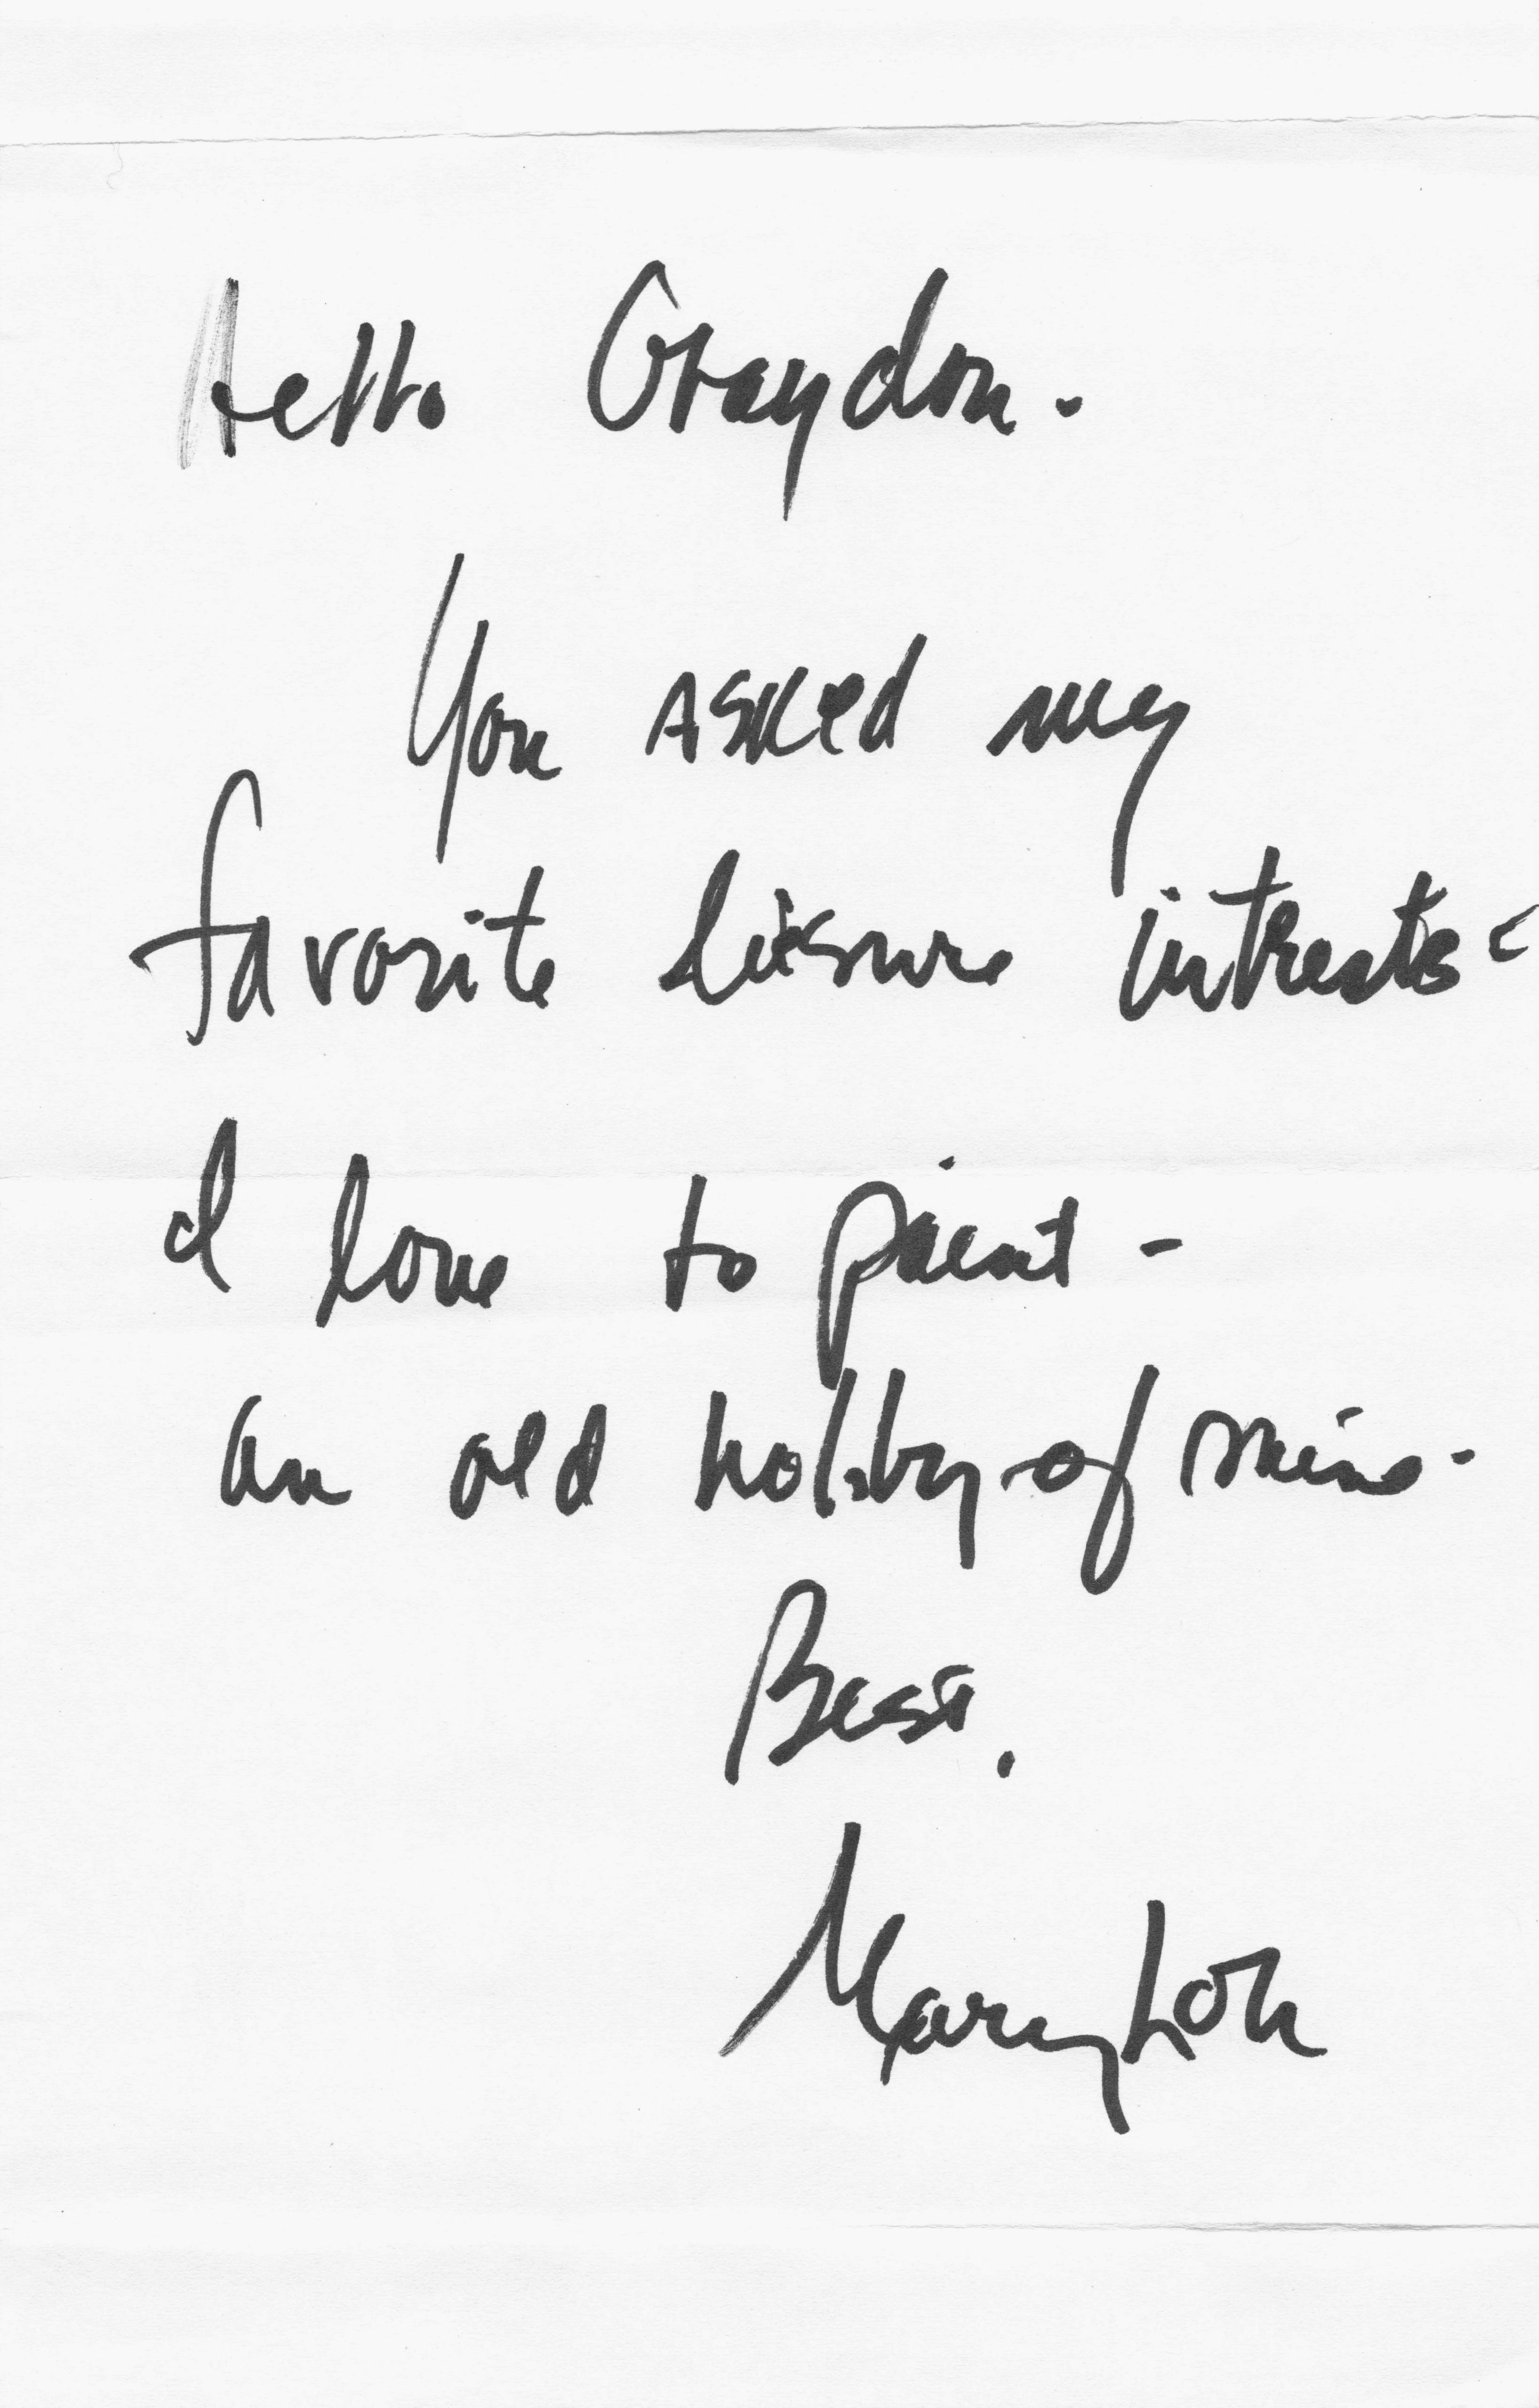 Hello Graydon.
You asked my
favorite liesure intrests -
I love to paint -
an old hobby of mine -
Best.
Mary Lou